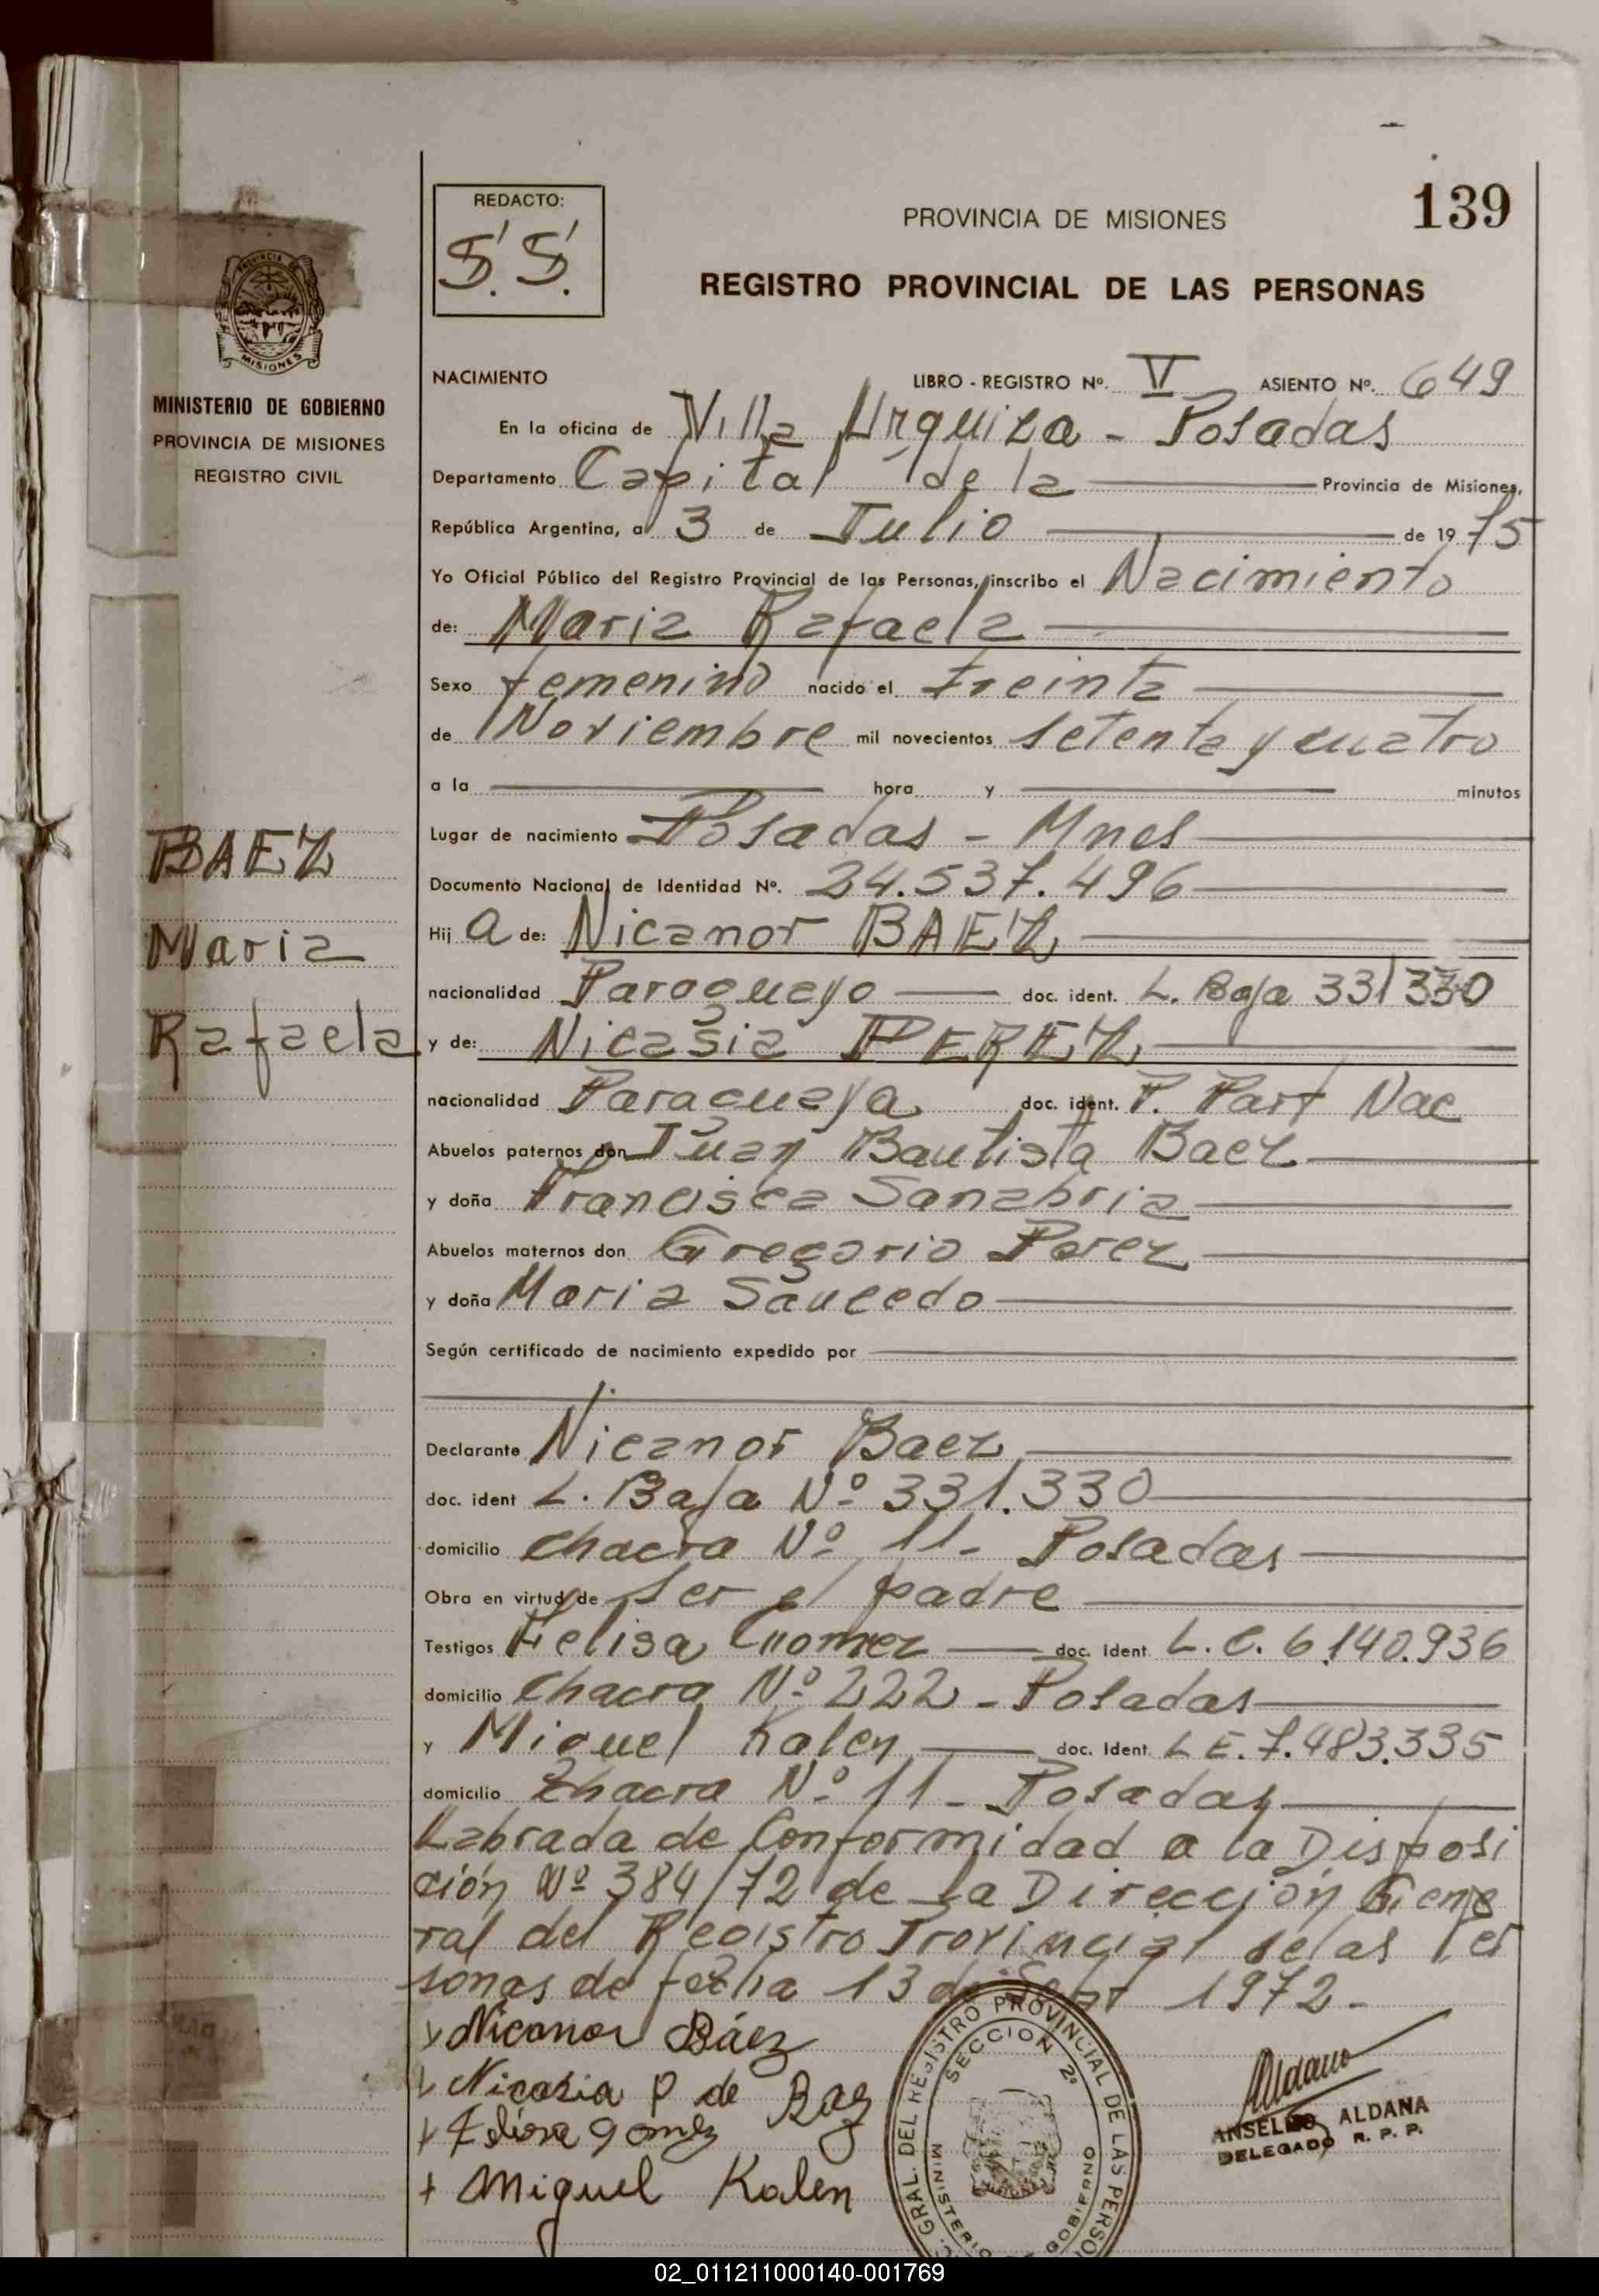 139
REDACTO:
S. S.
PROVINCIA DE MISIONES
REGISTRO PROVINCIAL DE LAS PERSONAS
PROVINCIA DE
MISIONES
MINISTERIO DE GOBIERNO
PROVINCIA DE MISIONES
REGISTRO CIVIL
NACIMIENTO LIBRO - REGISTRO Nº. V ASIENTO Nº. 649
En la oficina de Villa Urquiza - Posadas
Departamento Capital de la Provincia de Misiones,
República Argentina, a 3 de Julio de 1975
Yo Oficial Público del Registro Provincial de las Personas, inscribo el Nacimiento
de: Maria Rafaela
Sexo femenino nacido el treinta
de Noviembre mil novecientos setenta y cuatro
a la hora y minutos
Lugar de nacimiento Posadas - Mnes
Documento Nacional de Identidad Nº. 24.537.496
Hija de: Nicanor BAEZ
nacionalidad Paraguayo doc. ident. L. Baja 331330
y de: Nicasia PEREZ
nacionalidad Paraguaya doc. ident. P. Part Nac
Abuelos paternos don Juan Bautista Baez
y doña Francisca Sanabria
Abuelos maternos don Gregorio Perez
y doña Maria Saucedo
Según certificado de nacimiento expedido por
Declarante Nicanor Baez
doc. ident L. Baja Nº 331.330
domicilio chacra Nº 11- Posadas
Obra en virtud de ser el padre
Testigos Felisa Gomez doc. ident. L.C. 6.140.936
domicilio chacra Nº 222 - Posadas
y Miguel Kalen doc. Ident. L E. 7.483.335
domicilio chacra Nº 11 - Posadas
Labrada de Conformidad a la Disposi
ción Nº 384/72 de La Dirección Gene
ral del Registro Provincial de las Per
sonas de fecha 13 de Sept 1972.-
BAEZ
Maria
Rafaela
Nicanor Báez
Nicasia P de Baez
Gómez
Miguel Kalen
GRAL. DEL REGISTRO PROVINCIAL DE LAS PERSO
SECCION 2º
MINISTERIO GOBIERNO
Aldana
ANSELMO ALDANA
DELEGADO R. P. P.
02_011211000140-001769